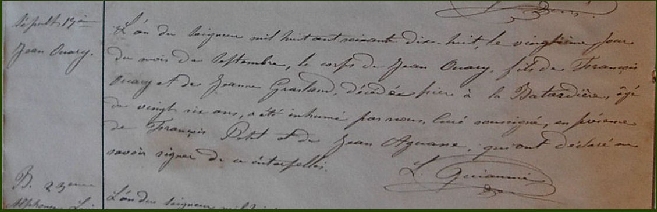 Sépult. 19ème
Jean Ouary.
L'an du Seigneur mil huit cent soixante dix-huit, le vingtième jour
du mois de Septembre, le corps de Jean Ouary, fils de François
Ouary et de Jeanne Grasland, décédée hier à la Batardière, âgé
de vingt six ans, a été inhumé par nous, Curé soussigné, en présence
de François Petit et de Jean Aguesse, qui ont déclaré ne
savoir signer de ce interpellés.
L. Guianmic
B.
Alphonse
L'an du Seigneur mil